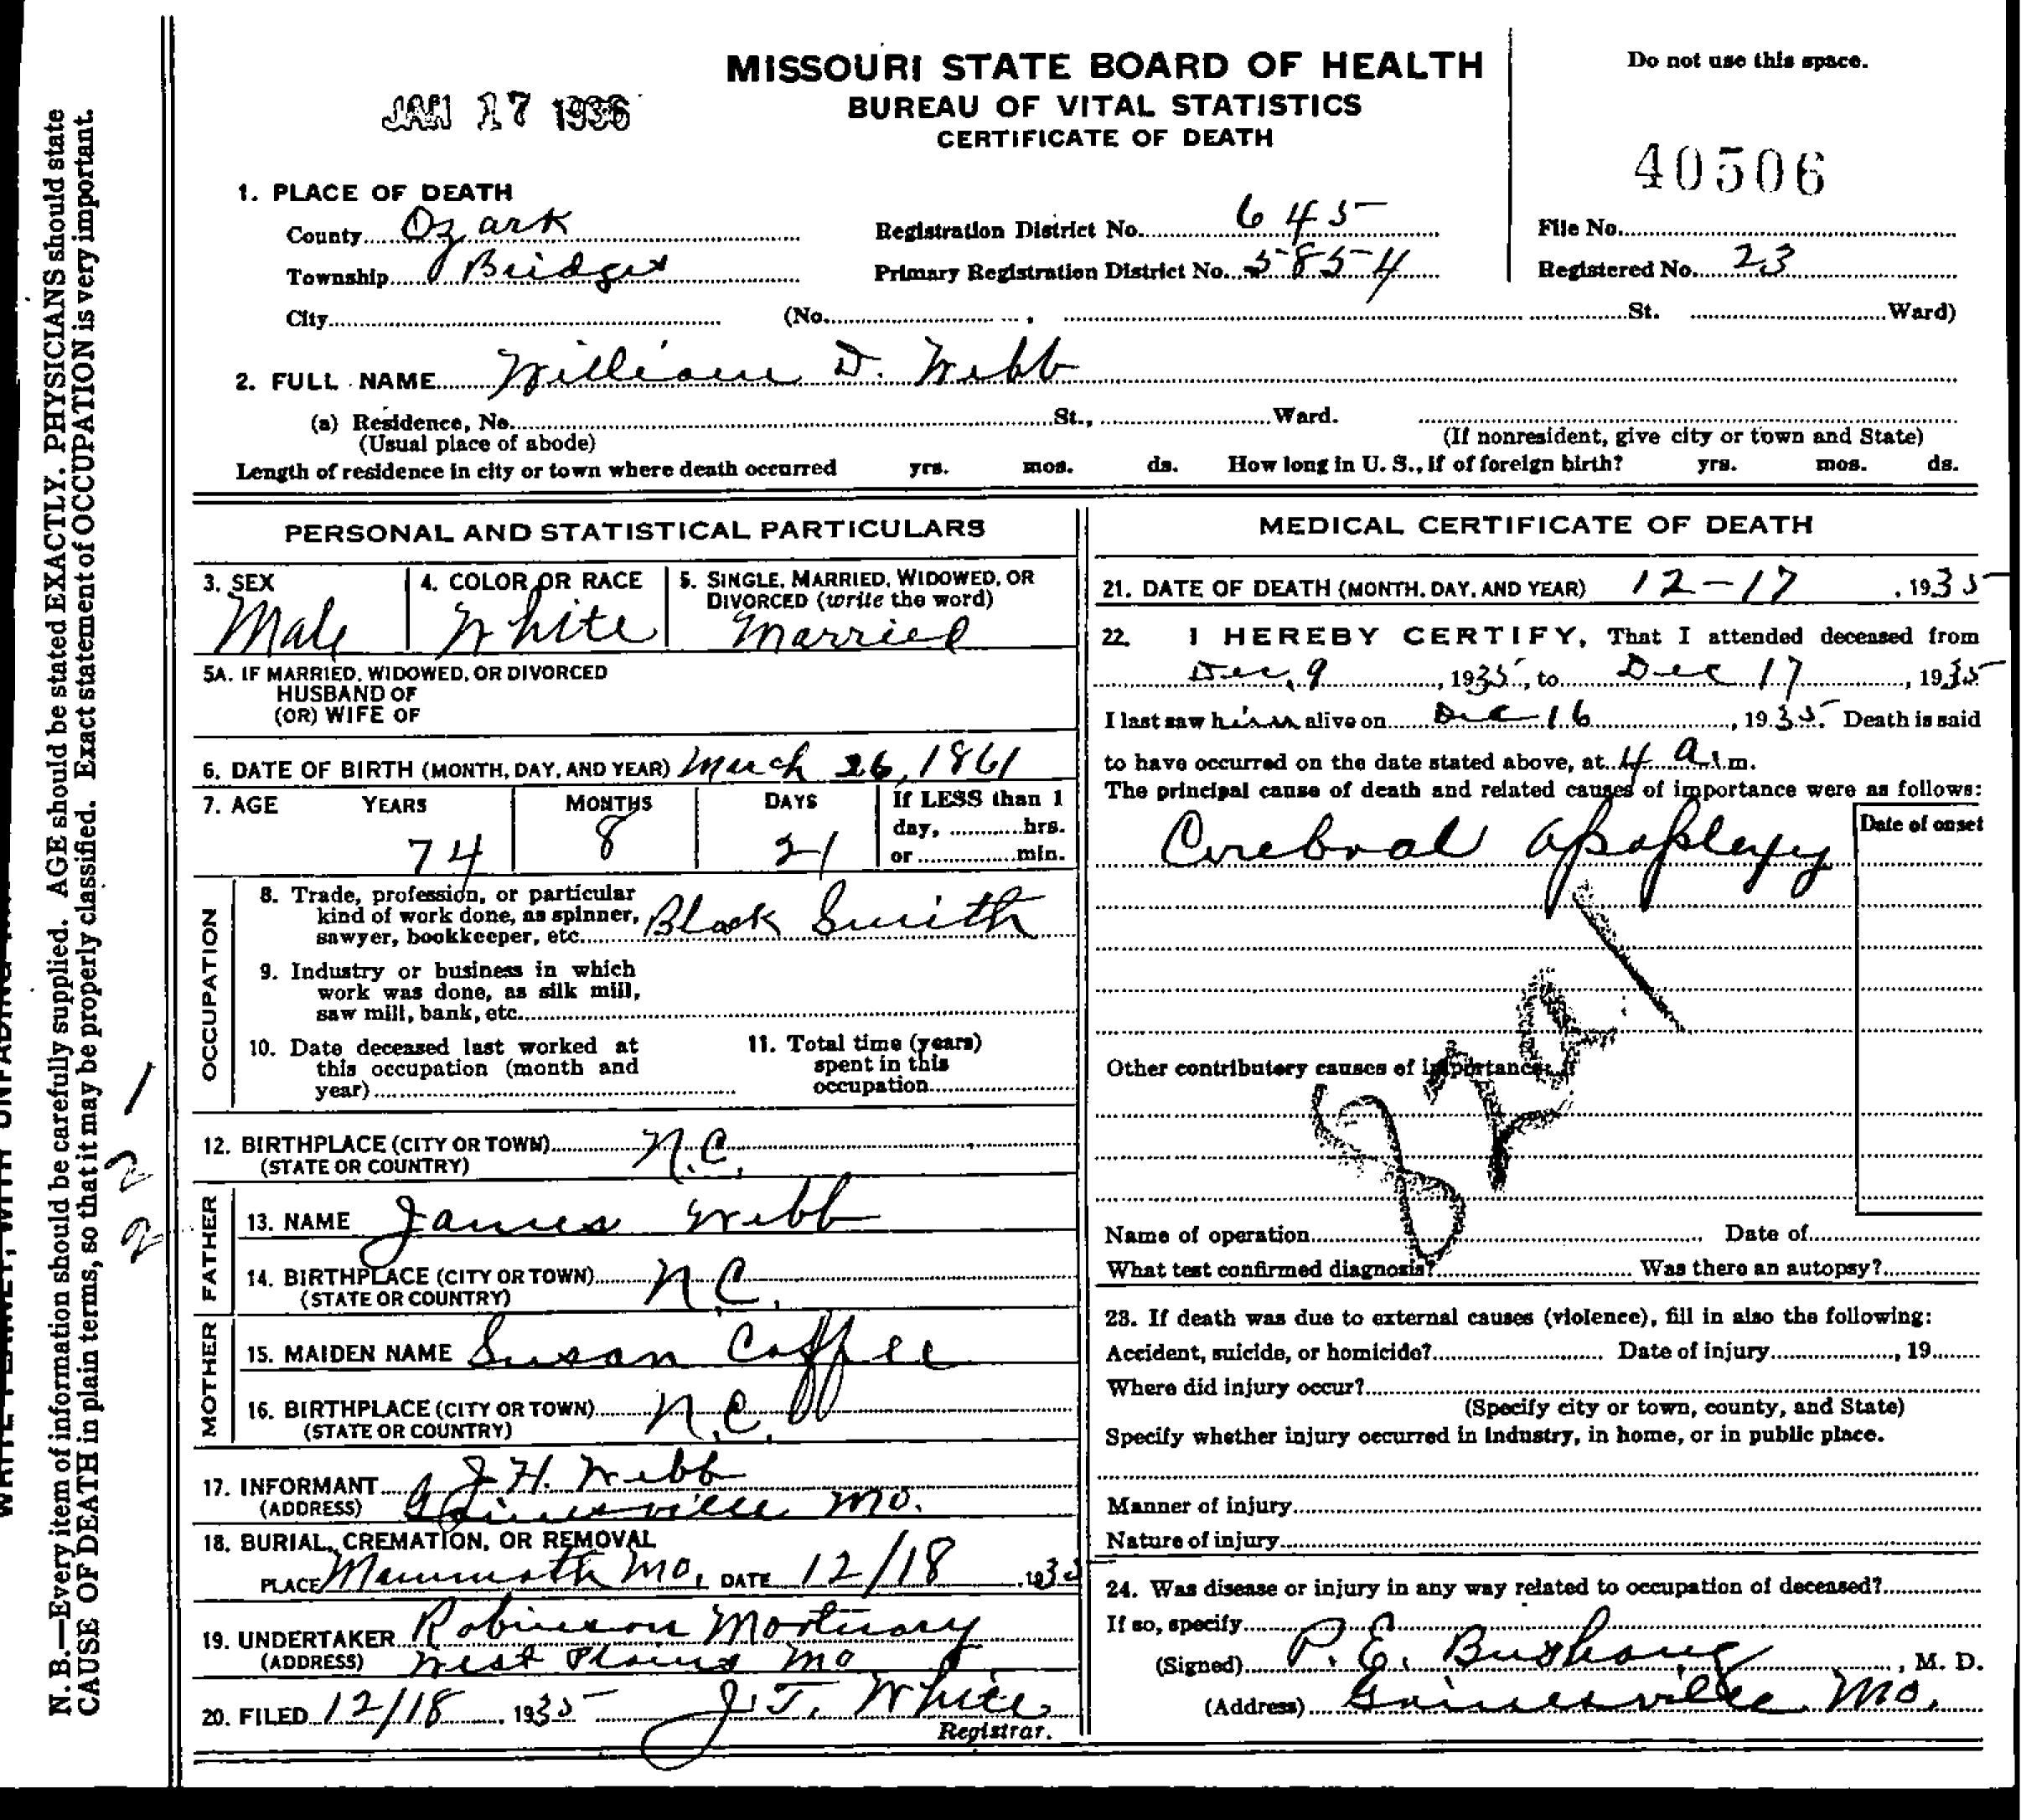 MISSOURI STATE BOARD OF HEALTH
BUREAU OF VITAL STATISTICS
CERTIFICATE OF DEATH
Do not use this space.
JAN 17 1936
40506
1. PLACE OF DEATH
County Ozark Registration District No. 645 File No.
Township Bridges Primary Registration District No. 5854 Registered No. 23
City (No. , St. Ward)
2. FULL NAME William D. Webb
(a) Residence, No. St., Ward.
(Usual place of abode) (If nonresident, give city or town and State)
Length of residence in city or town where death occurred yrs. mos. ds. How long in U. S., if of foreign birth? yrs. mos. ds.
PERSONAL AND STATISTICAL PARTICULARS
3. SEX Male
4. COLOR OR RACE White
5. SINGLE, MARRIED, WIDOWED, OR
DIVORCED (write the word)
Married
5A. IF MARRIED, WIDOWED, OR DIVORCED
HUSBAND OF
(OR) WIFE OF
6. DATE OF BIRTH (MONTH, DAY, AND YEAR) March 26, 1861
7. AGE YEARS MONTHS DAYS If LESS than 1
day, hrs.
74 8 21 or min.
OCCUPATION
8. Trade, profession, or particular
kind of work done, as spinner,
sawyer, bookkeeper, etc. Black Smith
9. Industry or business in which
work was done, as silk mill,
saw mill, bank, etc.
10. Date deceased last worked at
this occupation (month and
year)
11. Total time (years)
spent in this
occupation
12. BIRTHPLACE (CITY OR TOWN) N.C.
(STATE OR COUNTRY)
FATHER
13. NAME James Webb
14. BIRTHPLACE (CITY OR TOWN) N.C.
(STATE OR COUNTRY)
MOTHER
15. MAIDEN NAME Susan Coffee
16. BIRTHPLACE (CITY OR TOWN) N.C.
(STATE OR COUNTRY)
17. INFORMANT J H. Webb
(ADDRESS) Gainesville Mo.
18. BURIAL, CREMATION, OR REMOVAL
PLACE Mammoth Mo. DATE 12/18 , 1935
19. UNDERTAKER Robinson Mortuary
(ADDRESS) West Plains Mo
20. FILED 12/18 , 1935 J. T. White
Registrar.
MEDICAL CERTIFICATE OF DEATH
21. DATE OF DEATH (MONTH, DAY, AND YEAR) 12-17 , 1935
22. I HEREBY CERTIFY, That I attended deceased from
Dec, 9 , 1935, to Dec 17 , 1935
I last saw him alive on Dec 16 , 1935. Death is said
to have occurred on the date stated above, at 4 a.m.
The principal cause of death and related causes of importance were as follows:
Date of onset
Cerebral apoplexy
Other contributory causes of importance:
Name of operation Date of
What test confirmed diagnosis? Was there an autopsy?
23. If death was due to external causes (violence), fill in also the following:
Accident, suicide, or homicide? Date of injury , 19
Where did injury occur?
(Specify city or town, county, and State)
Specify whether injury occurred in industry, in home, or in public place.
Manner of injury
Nature of injury
24. Was disease or injury in any way related to occupation of deceased?
If so, specify
(Signed) P. E. Bushong , M. D.
(Address) Gainesville Mo.
N. B.—Every item of information should be carefully supplied. AGE should be stated EXACTLY. PHYSICIANS should state
CAUSE OF DEATH in plain terms, so that it may be properly classified. Exact statement of OCCUPATION is very important.